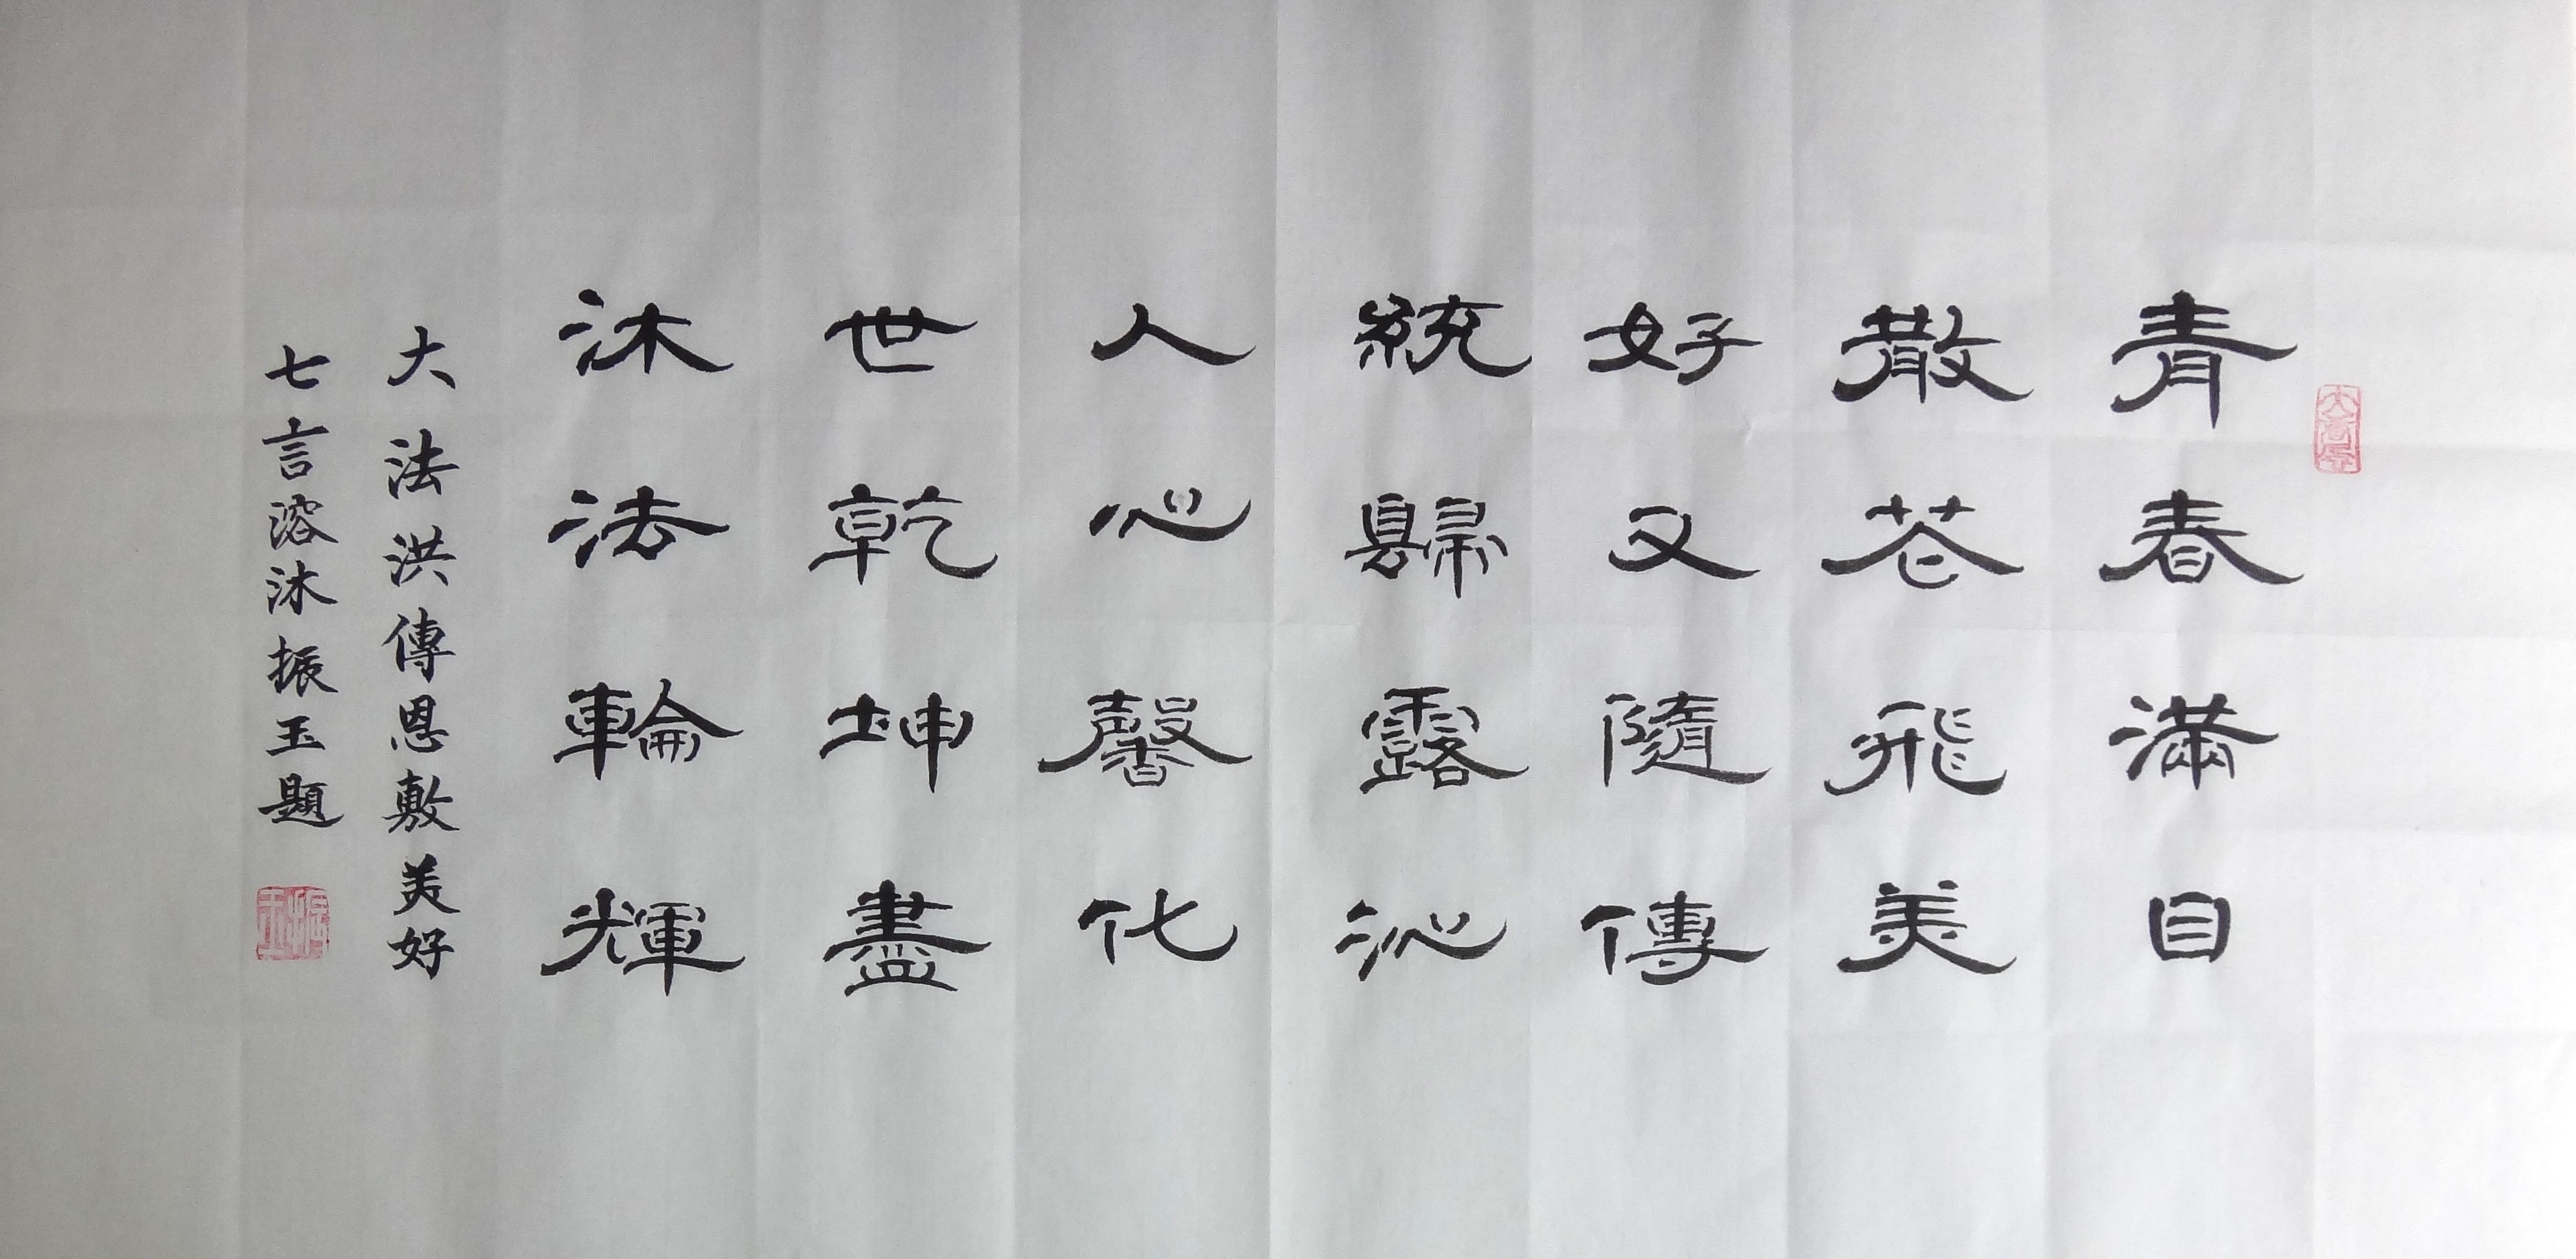 青春滿目
散花飛美
好又隨傳
統歸露沁
人心馨化
世乾坤盡
沐法輪輝
大法洪傳恩敷美好
七言溶沐振玉題
振玉